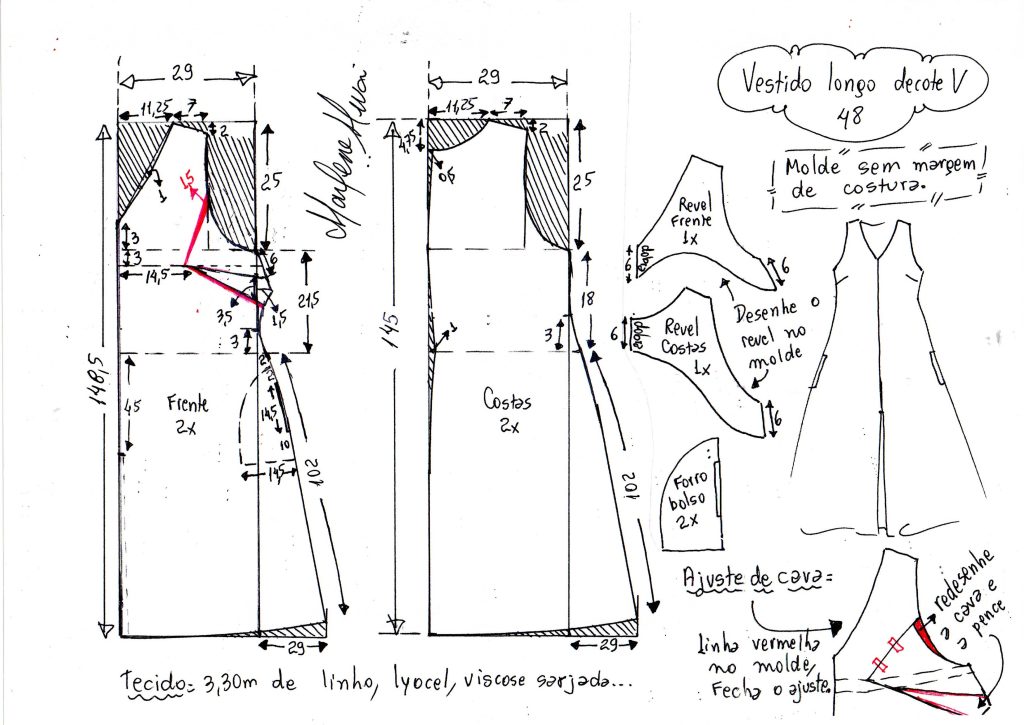 Vestido longo decote V
48
Molde sem margem
de costura.
Marlene Mukai
29
11,25
7
2
25
1,5
1
3
3
14,5
6
3,5
1,5
21,5
3
2
148,5
45
Frente
2x
14,5
10
14,5
102
29
29
11,25
7
4,5
2
0,5
25
18
3
145
1
Costas
2x
102
29
Revel
Frente
1x
dobra
6
6
Desenhe o
revel no
molde
Revel
Costas
1x
dobra
6
6
Forro
bolso
2x
Ajuste de cava=
Linha vermelha
no molde,
Fecha o ajuste.
redesenhe
a cava e
a pence
Tecido= 3,30m de linho, lyocel, viscose sarjada...